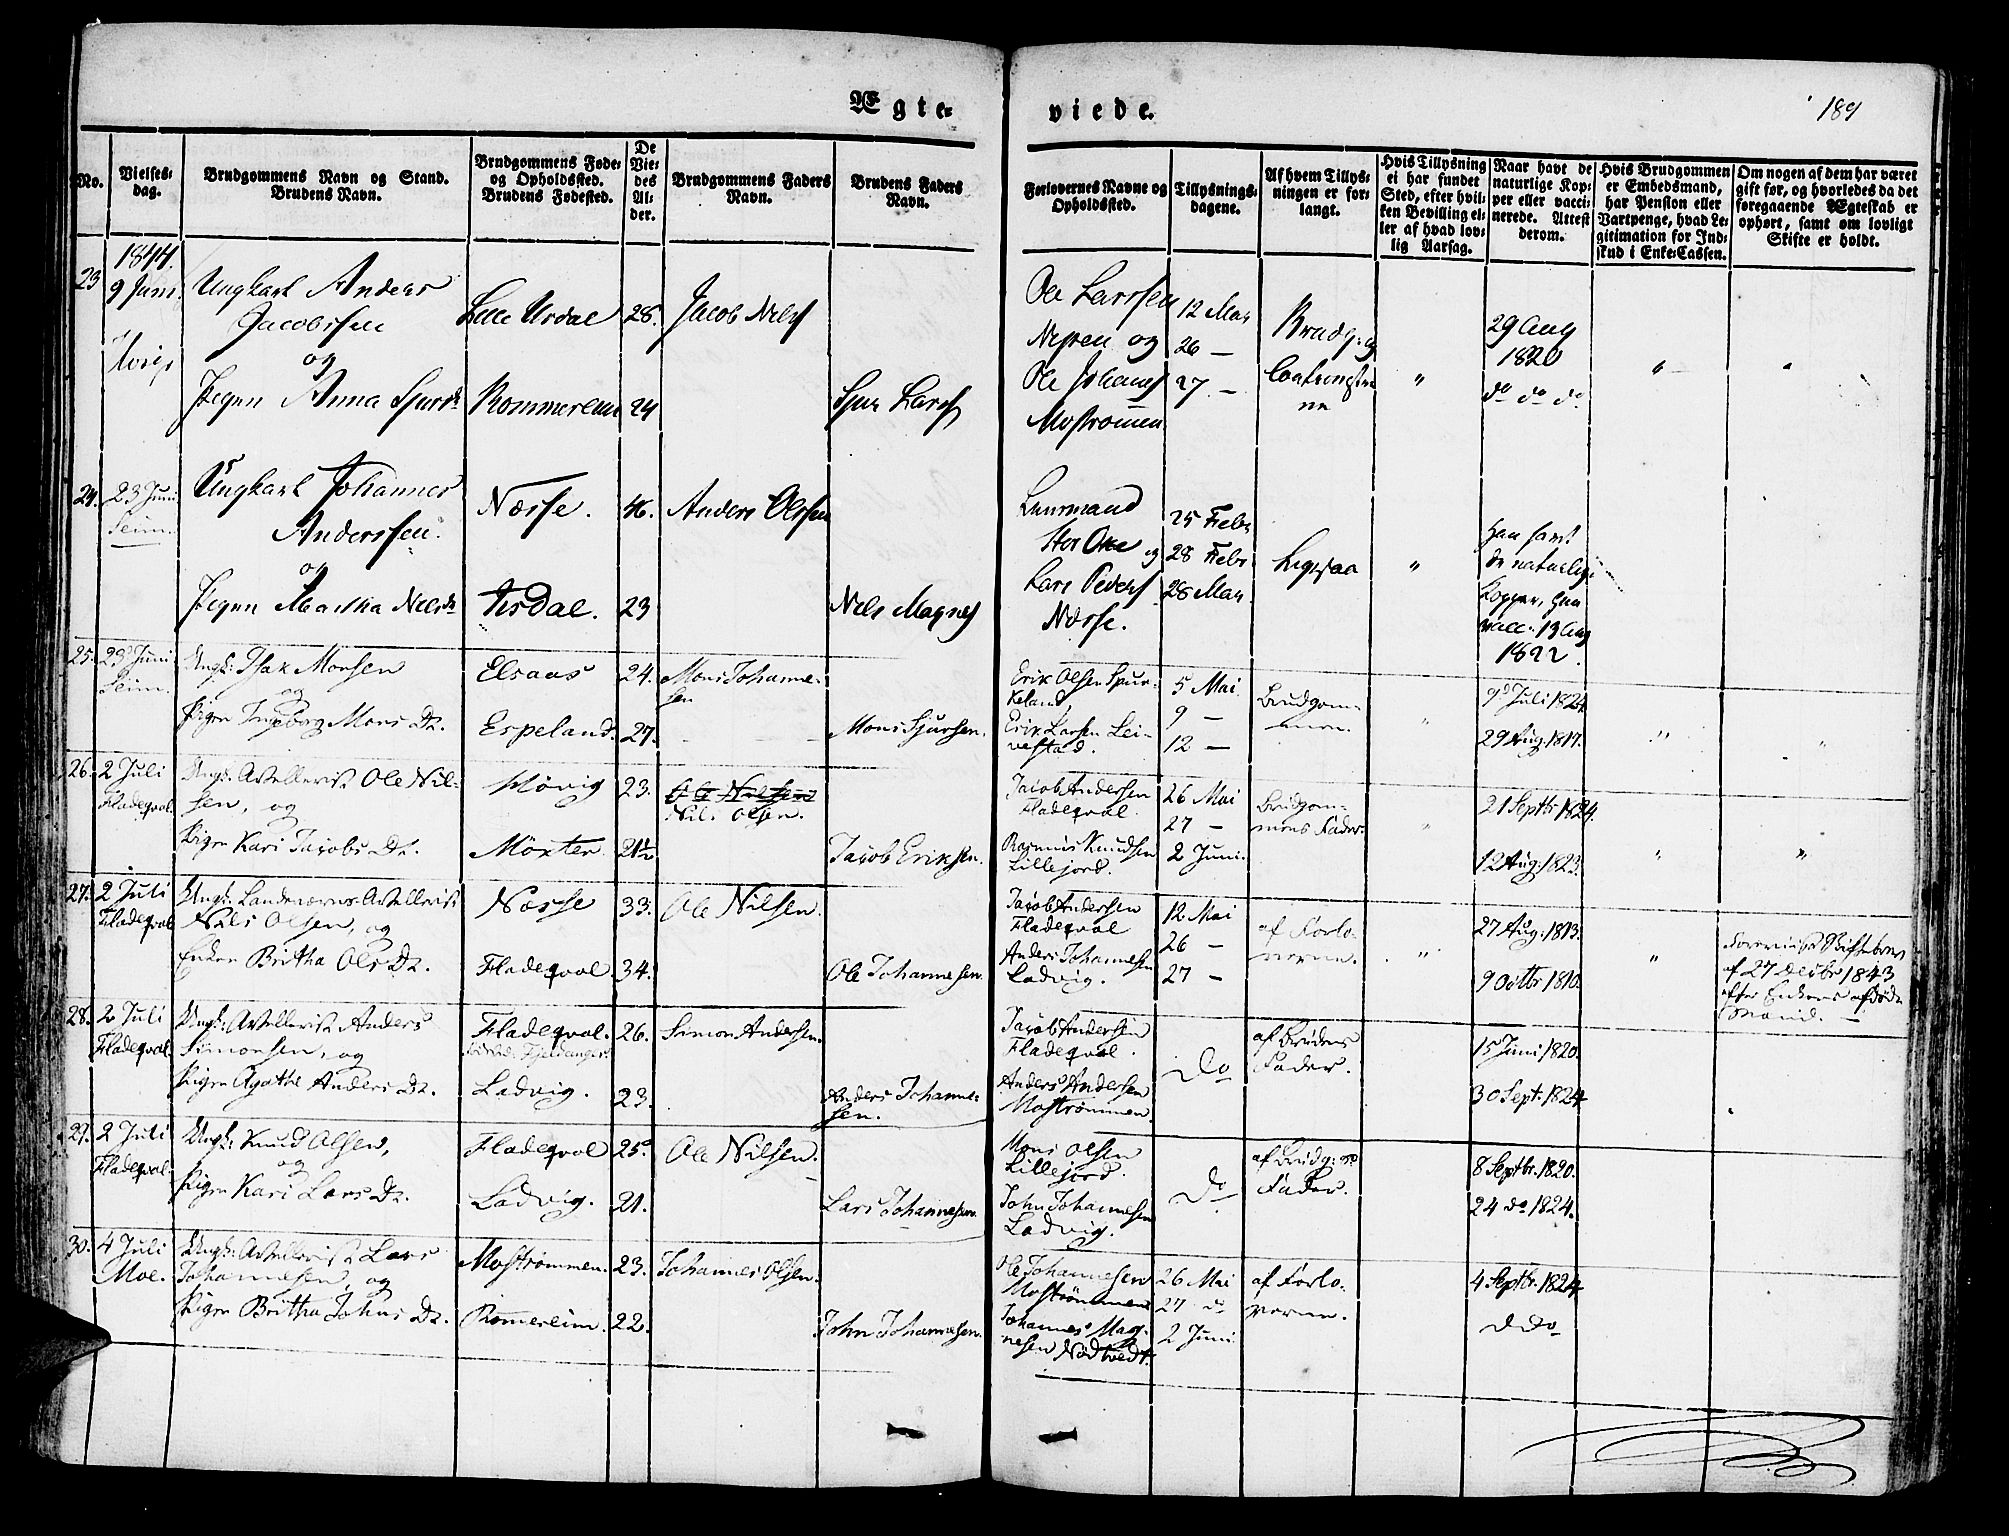 Ægte- viede.
189
No.
Vielses-
dag.
Brudgommens Navn og Stand.
Brudens Navn.
Brudgommens Føde-
og Opholdssted.
Brudens Fødested.
De
Vie-
des
Al-
der.
Brudgommens Faders
Navn.
Brudens Faders
Navn.
Forlovernes Navne og
Opholdssted.
Tillysnings-
dagene.
Af hvem Tillys-
ningen er for-
langt.
Hvis Tillysning
ei har fundet
Sted, efter hvil-
ken Bevilling el-
ler af hvad lov-
lig Aarsag.
Naar havt de
naturlige Kop-
per eller vacci-
nerede. Attest
derom.
Hvis Brudgommen
er Embedsmand,
har Pension eller
Vartpenge, hvad Le-
gitimation for Ind-
skud i Enke-Cassen.
Om nogen af dem har været
gift før, og hvorledes da det
foregaaende Ægteskab er
ophørt, samt om lovligt
Skifte er holdt.
1844.
23
9 Juni
Ungkarl Anders
Jacobssen
og
Pigen Anna Sjursdr
Lille Urdal
Rommereim
28.
24
Jacob Nels
Sjur Lars
Ole Larssen
Nepsen og
Ole Johans
Mostrømmen
12 Mai
26 —
27 —
Brudg: og
"
29 Aug
1820
do do do
"
"
24.
23 Juni
Seim.
Ungkarl Johannes
Anderssen
og
Pigen Martha Nelsdr
Næsse.
Aasdal.
46.
23
Anders Olssen
Nels Magnes
Leensmand
Stor Oke og
Lars Peders
Næsse.
25 Febr
28 Febr
28 Mar
Ligesaa
"
Han havt
de naturlige
Kopper, hun
vacc. 13 Aug
1822.
25.
23 Juni
Seim.
Ungk: Isak Monsen
og
Pigen Ingeborg Mons Dr.
Elsaas
Espeland.
24.
27.
Mons Johanne-
sen
Mons Sjursen.
Erik Olsen Spur-
keland,
Erik Larsen Lei-
vestad.
5 Mai
9 —
12 —
Brudgom-
men.
"
9 Juli 1824.
29 Aug. 1817.
"
"
26.
2 Juli
Fladeqval.
Ungk: Artillerist Ole Nil-
sen, og
Pigen Kari Jacobs Dr.
Møvig
Møxter
23.
21½
Ole Nilsen
Nils Olsen.
Jacob Eriksen.
Jacob Andersen
Fladeqval.
Rasmus Knudsen
Lillejord.
26 Mai
27 —
2 Juni.
Brudgom-
mens Fader.
"
21 Septbr 1824.
12 Aug: 1823.
"
"
27.
2 Juli
Fladeqval
Ungk: Landeværns-Artellerist
Nils Olsen, og
Enken Britha Ols Dr.
Næsse
Fladeqval.
33.
34.
Ole Nilsen.
Ole Johannesen.
Jacob Andersen
Fladeqval
Anders Johannesen
Ladvig.
12 Mai
26 —
27 —
af Forlo-
verne.
"
27 Aug: 1813.
9 Octbr 1810.
"
Forevist Skiftebrev
af 27 Decbr 1843
efter Enkens afdøde
Mand. —
28.
2 Juli
Fladeqval.
Ungk: Artillerist Anders
Simonsen, og
Pigen Agathe Anders Dr.
Fladeqval.
Ladvig.
26.
23.
Simon Andersen.
Anders Johanne-
sen.
Jacob Andersen
Fladeqval.
Anders Andersen
Mostrømmen
Do
af Brudens
Fader.
15 Juni 1820.
30 Sept: 1824.
29.
2 Juli
Fladeqval.
Ungk: Knud Olsen,
og
Pigen Kari Lars Dr.
Fladeqval
Ladvig.
25
21.
Ole Nilsen.
Lars Johannesen
Mons Olsen
Lillejord.
John Johannesen
Ladvig.
Do
af Brudg: ns
Fader.
8 Septbr. 1820.
24 do 1824.
30.
4 Juli
Moe.
Ungk: Artillerist Lars
Johannesen, og
Pigen Britha Johns Dr.
Mostrømmen.
Romereim.
23.
22.
Johannes Olsen.
John Johannesen.
Ole Johannesen
Mostrømmen
Johannes Mag-
nesen Nødtvedt.
26 Mai
27 do
2 Juni
af Forlo-
verne.
4 Septbr. 1824
ddo